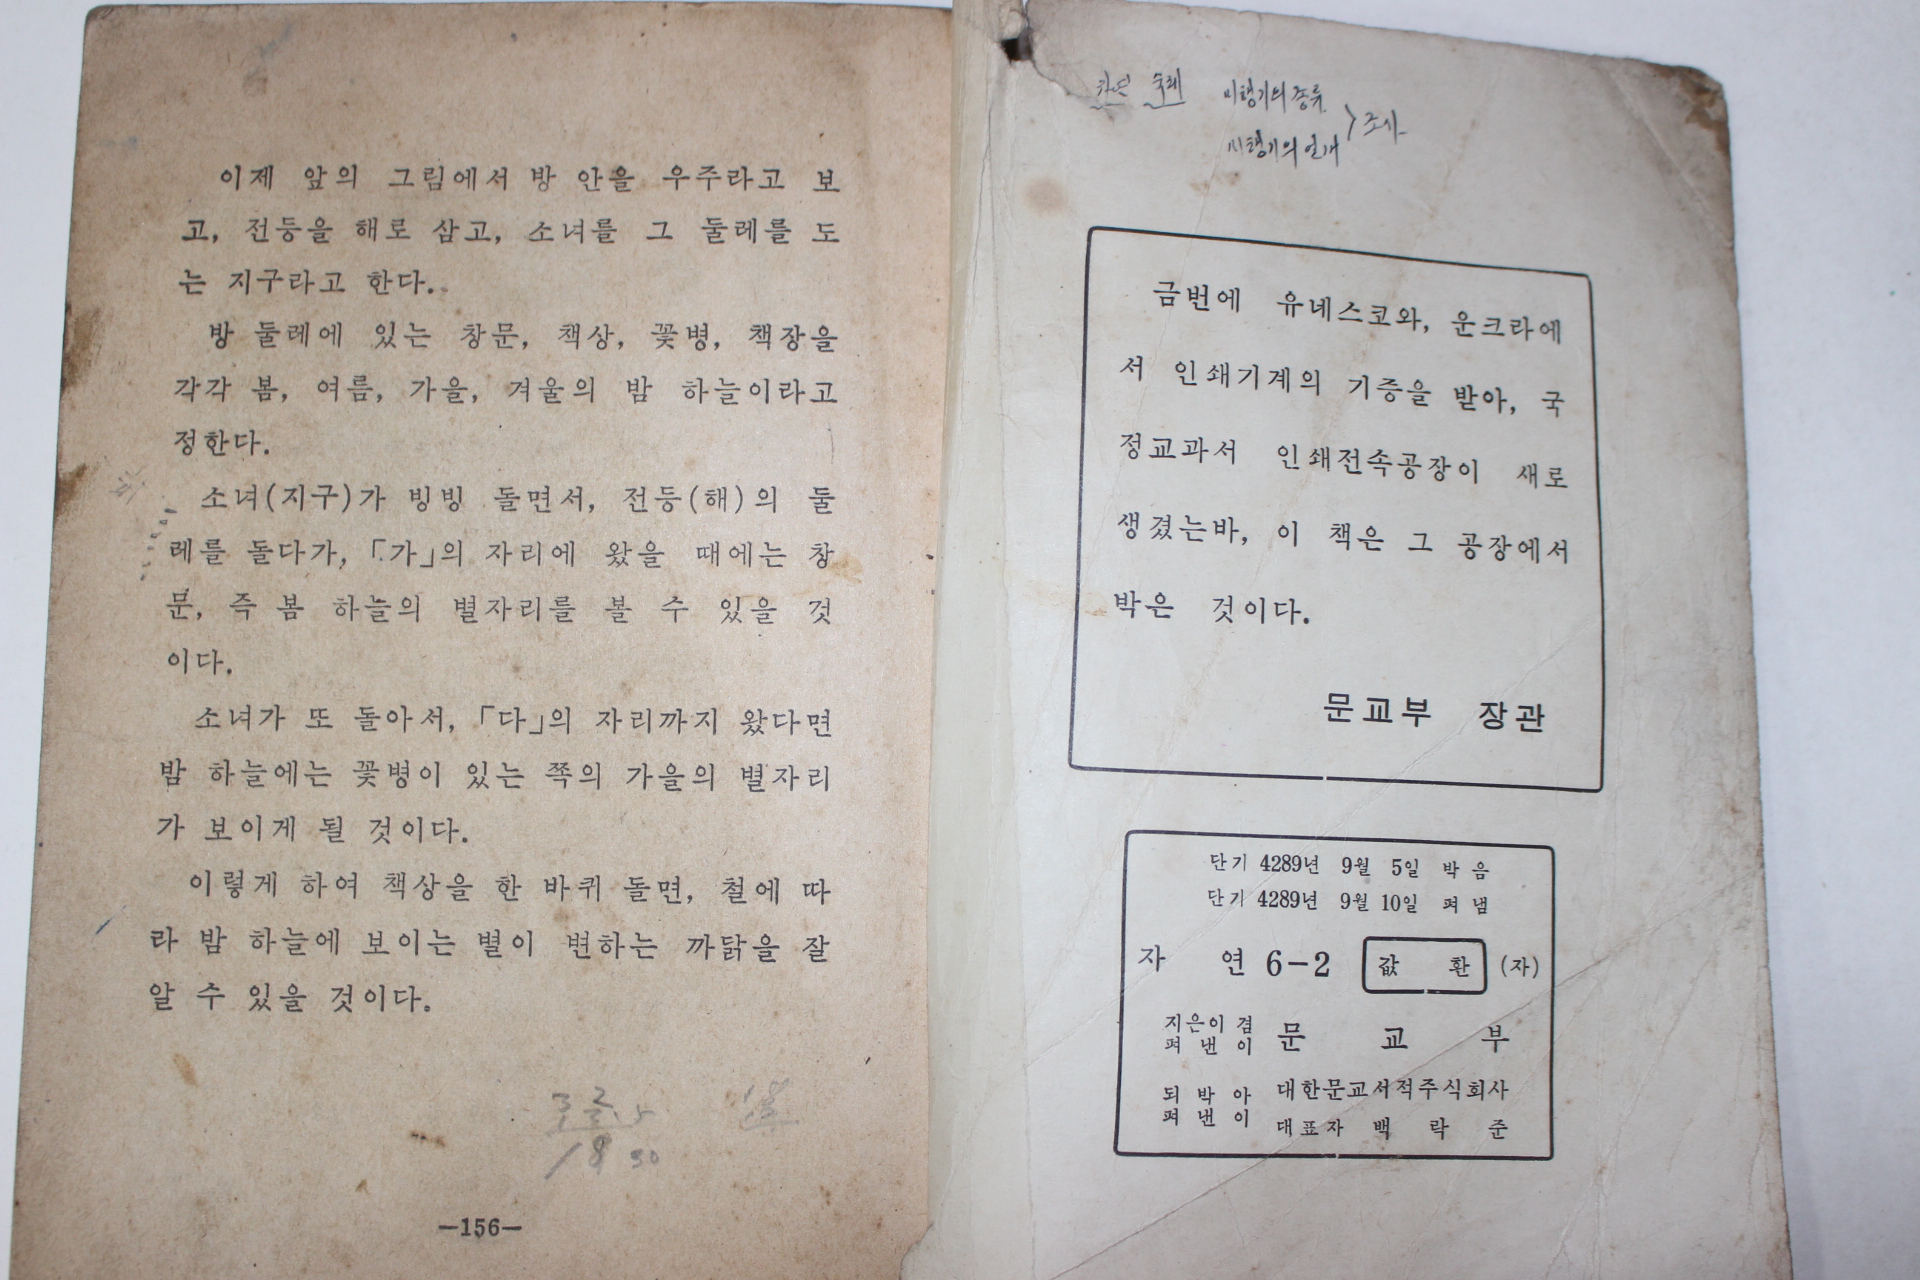 이제 앞의 그림에서 방 안을 우주라고 보
고, 전등을 해로 삼고, 소녀를 그 둘레를 도
는 지구라고 한다.
방 둘레에 있는 창문, 책상, 꽃병, 책장을
각각 봄, 여름, 가을, 겨울의 밤 하늘이라고
정한다.
소녀(지구)가 빙빙 돌면서, 전등(해)의 둘
레를 돌다가, 「가」의 자리에 왔을 때에는 창
문, 즉 봄 하늘의 별자리를 볼 수 있을 것
이다.
소녀가 또 돌아서, 「다」의 자리까지 왔다면
밤 하늘에는 꽃병이 있는 쪽의 가을의 별자리
가 보이게 될 것이다.
이렇게 하여 책상을 한 바퀴 돌면, 철에 따
라 밤 하늘에 보이는 별이 변하는 까닭을 잘
알 수 있을 것이다.
18 30
—156—
숙제 비행기의 종류
비행기의 조사
금번에 유네스코와, 운크라에
서 인쇄기계의 기증을 받아, 국
정교과서 인쇄전속공장이 새로
생겼는바, 이 책은 그 공장에서
박은 것이다.
문교부 장관
단기 4289년 9월 5일 박음
단기 4289년 9월 10일 펴냄
자 연 6-2 값 환 (자)
지은이 겸
펴낸이 문교부
되박아
펴낸이 대한문교서적주식회사
대표자 백락준